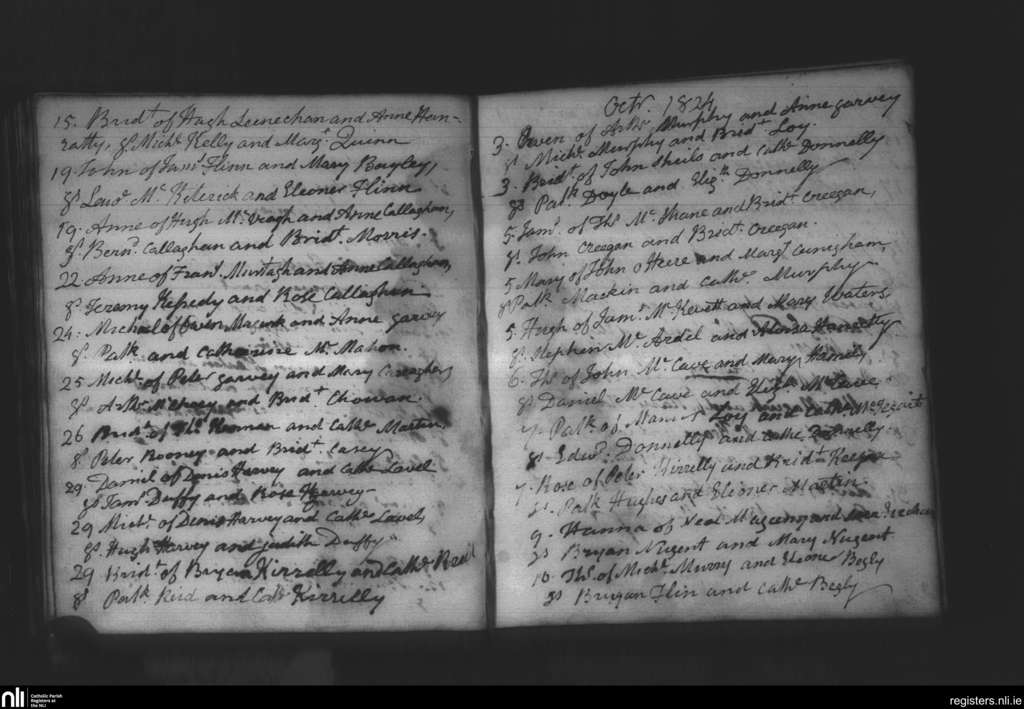 15. Bridt of Hugh Leenechan and Anne Han-
ratty, gs Michl Kelly and Margt Quinn
19. John of Jams Flinn and Mary Bayley,
gs Lawe Mc Kiterick and Eleoner Flinn
19. Anne of Hugh Mc Veagh and Anne Callaghan,
gs Bernd Callaghan and Bridt Morris.
22 Anne of Frans Murtagh and Anne Callaghan,
gs Jeremy and Rose Callaghan
24. Michael of Owen and Anne Garvey
gs Patk and Catherine Mc Mahon.
25 Michl of Peter Garvey and Mary
gs and Bridt Chowan.
26 Bridt of Ths and Cathe Martin.
gs Peter Rooney and Bridt Casey
29. Daniel of Denis Harvey and Cathe Lavel
gs Jams Duffy and Rose Harvey
29 Michl of Denis Harvey and Cathe Lavel,
gs Hugh Harvey and Judith Duffy
29 Bridt of Bryan Kirrelly and Cathe Reid
gs Patk Reid and Cathe Kirrelly
Octr. 1824
3. Owen of Murphy and Anne Garvey
gs Michl Murphy and Bridt Loy.
3. Bridt of John Sheils and Cathe Donnelly
gs Patk Doyle and Elizth Donnelly
5. Jams of Ths Mc Shane and Bridt Creegan,
gs. John Creegan and Bridt Creegan.
5 Mary of John and Margt
gs Patk Mackin and Cathe Murphy
5. Hugh of Jams Mc Kevitt and Mary Waters
gs Stephen Mc Ardel and Hanratty
6. Ths of John Mc Cave and Mary
gs Daniel Mc Cave and Mc Cave.
7. Patk of Loy and Cathe
gs Edwd Donnelly and Cathe Donnelly.
7. Rose of Peter Kirrelly and Bridt
gs. Patk Hughes and Eleoner Martin
9. Hanna of Neal and
gs Bryan Nugent and Mary Nugent
10. Ths of Michl Murry and Eleoner Begly
gs Bryan Flin and Cathe Begly
nli
Catholic Parish
Registers at
the NLI
registers.nli.ie